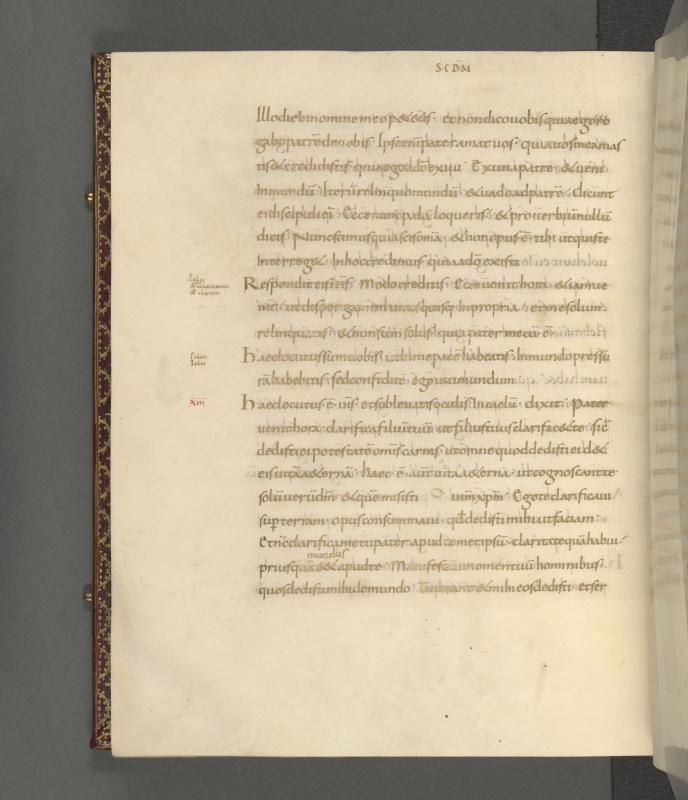 S·C D̄M
Illo die in nomine meo p&&is · et non dico uobis quia ego ro
gabo patrē de uobis · Ipse enī pater amat uos · quia uos me amas
tis & credidistis quia ego a dō exiui · Exiui a patre & ueni
In mundū · Iterū relinquo mundū & uado ad patrē · Dicunt
ei discipuli ei · Ecce nunc palā loqueris · & prouerbiū nullū
dicis · Nunc scimus quia scis omīa · & non opus ē tibi ut quis te
Interrog& · In hoc credimus quia a dō existi
Respondit eis ih̄s · Modo creditis · Ecce uenit hora & iam ue
nit · ut dispergamini unusquisq; In propria · et me solum
relinquatis · & non sum solus quia pater mecū ē
haec locutus sum uobis ut In me pacē habeatis · In mundo pressu
rā habebitis · sed confidite ego uici mundum ·
XIII
haec locutus ē ih̄s · et subleuatis oculis In caelū · dixit · Pater
uenit hora · clarifica filiū tuū ut filius tuus clarific& te · sic
dedisti ei potestatē omīs carnis · ut omne quod dedisti ei d&
eis uitā a&ernā · haec ē aut̄ uita a&erna · ut cognoscant te
solū uerū dm̄ & quē misisti ihm̄ xpm̄ · Ego te clarificaui
sup̄ terram · opus consummaui qd̄ dedisti mihi ut faciam ·
Et n̄c clarifica me tu pater apud temetipsū · claritate quā habui
mundus
priusquā ess& apud te · Manifestaui nomen tuū hominibus ·
quos dedisti mihi de mundo · Tui erant & mihi eos dedisti · et ser